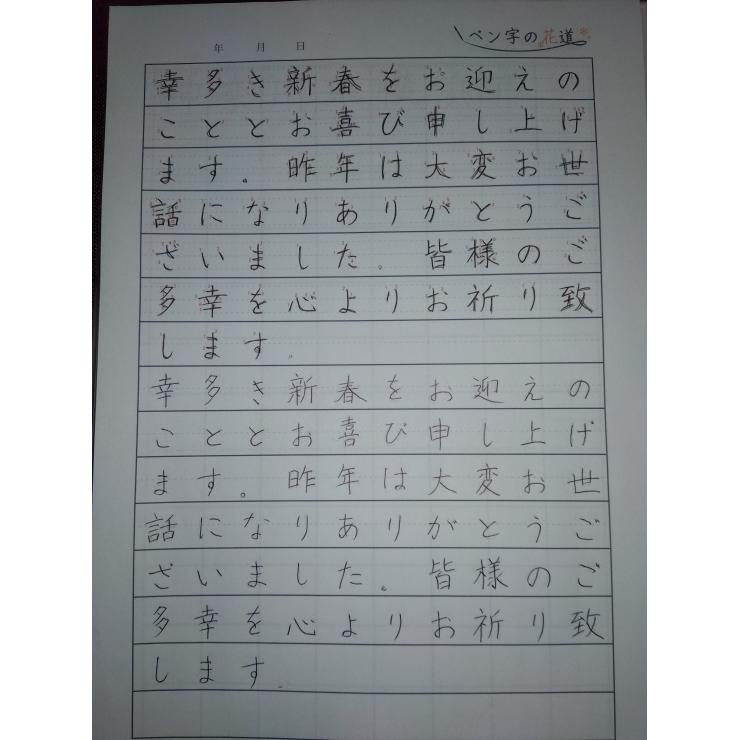 年 月 日
ペン字の花道
幸多き新春をお迎えの
こととお喜び申し上げ
ます。昨年は大変お世
話になりありがとうご
ざいました。皆様のご
多幸を心よりお祈り致
します。
幸多き新春をお迎えの
こととお喜び申し上げ
ます。昨年は大変お世
話になりありがとうご
ざいました。皆様のご
多幸を心よりお祈り致
します.